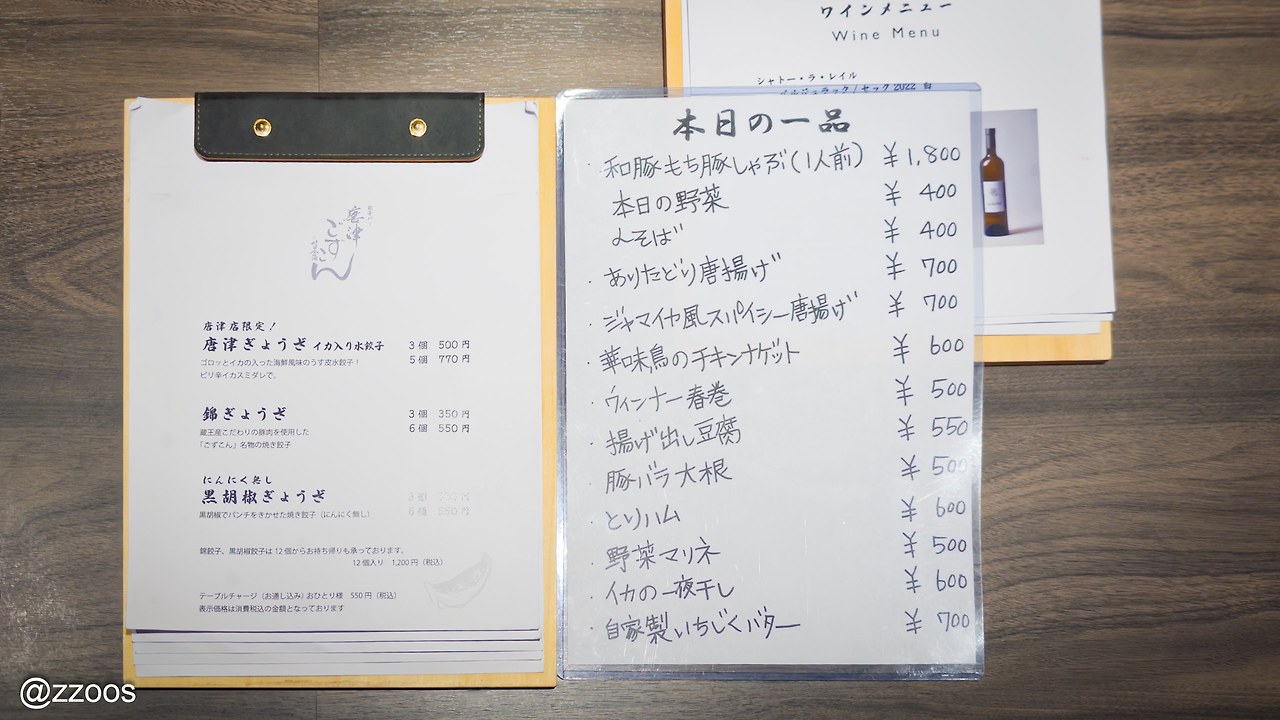 唐津
ごすこん
唐津店限定！
唐津ぎょうざ イカ入り水餃子 3個 500円
5個 770円
ゴロッとイカの入った海鮮風味のうす皮水餃子！
ピリ辛イカスミダレで。
錦ぎょうざ 3個 350円
6個 550円
蔵王産こだわりの豚肉を使用した
「ごずこん」名物の焼き餃子
にんにく無し
黒胡椒ぎょうざ 3個
6個
黒胡椒でパンチをきかせた焼き餃子（にんにく無し）
錦餃子、黒胡椒餃子は12個からお持ち帰りも承っております。
12個入り 1,200円（税込）
テーブルチャージ（お通し込み）おひとり様 550円（税込）
表示価格は消費税込の金額となっております
本日の一品
・和豚もち豚しゃぶ(1人前) ¥1,800
本日の野菜 ¥400
〆そば ¥400
・ありたどり唐揚げ ¥700
・ジャマイヤ風スパイシー唐揚げ ¥700
・華味鳥のチキンナゲット ¥600
・ウィンナー春巻 ¥500
・揚げ出し豆腐 ¥550
・豚バラ大根 ¥500
・とりハム ¥600
・野菜マリネ ¥500
・イカの一夜干し ¥600
・自家製いちじくバター ¥700
ワインメニュー
Wine Menu
シャトー・ラ・レイル
ベルジュラック / セック 2022 白
@zzoos